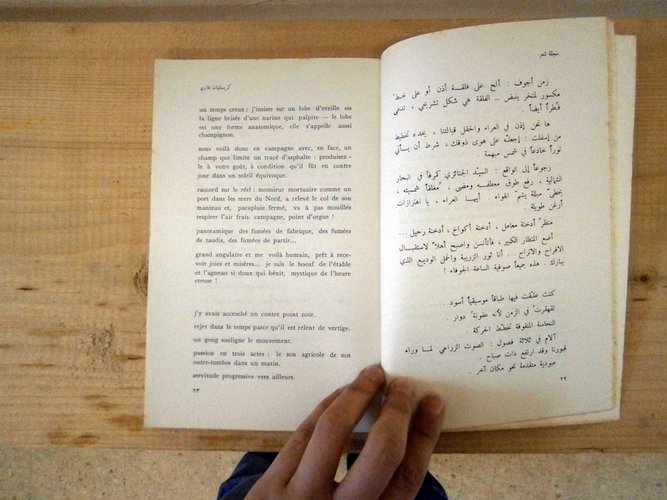 مجلة شعر
زمن أجوف : ألح على فلقة أذن أو على خط
مكسور لمنخر ينبض ـ الفلقة هي شكل تشريحي ، تدعى
فُطراً أيضاً
ها نحن إذن في العراء والحقل قبالتنا ، يحده تخطيط
من إسفلت : على هوى ذوقك ، شرط أن
نوراً خادعاً في شمس مبهمة .
رجوعاً إلى الواقع : السيّد الجنائزي كمرفأ في البحار
الشمالية ، رفع طوق معطفه ومضى ، مغلقاً شمسيته ،
بخطى مبللة يشم الهواء . أيها العراء ، يا اهتزازات
أرغن طويلة
منظر أدخنة معامل ، أدخنة أكواخ ، أدخنة رحيل ...
أضع المنظار الكبير ، فأتأنسن وأصبح أهلاً لاستقبال
الافراح والاتراح ... أنا ثور الزريبة والحمل الوديع الذي
يبارك . هذه جميعاً صوفية الساعة الجوفاء !
كنت علقت فيها طباقاً موسيقياً أسود
تقهقرت في الزمن لأنه عفونة دوار .
النحاسة المنقوفة تخطط الحركة
آلام في ثلاثة فصول : الصوت الزراعي لما وراء
قبورنا وقد ارتفع ذات صباح .
عبودية متقدمة نحو مكان آخر .
٢٢
كريستيان غازي
un temps creux : j'insiste sur un lobe d'oreille ou
la ligne brisée d'une narine qui palpite — le lobe
est une forme anatomique, elle s'appelle aussi
champignon.
nous voilà donc en campagne avec, en face, un
champ que limite un tracé d'asphalte : produisez-
le à votre goût, à condition qu'il fût en contre
jour dans un soleil équivoque.
raccord sur le réel : monsieur mortuaire comme un
port dans les mers du Nord, a relevé le col de son
manteau et, parapluie fermé, va à pas mouillés
respirer l'air frais, campagne, point d'orgue !
panoramique des fumées de fabrique, des fumées
de taudis, des fumées de partir...
grand angulaire et me voilà humain, prêt à rece-
voir joies et misères... je suis le boeuf de l'étable
et l'agneau si doux qui bénit, mystique de l'heure
creuse !
j'y avais accroché un contre point noir.
rejet dans le temps parce qu'il est relent de vertige.
un gong souligne le mouvement.
passion en trois actes : le son agricole de nos
outre-tombes dans un matin.
servitude progressive vers ailleurs.
٢٣